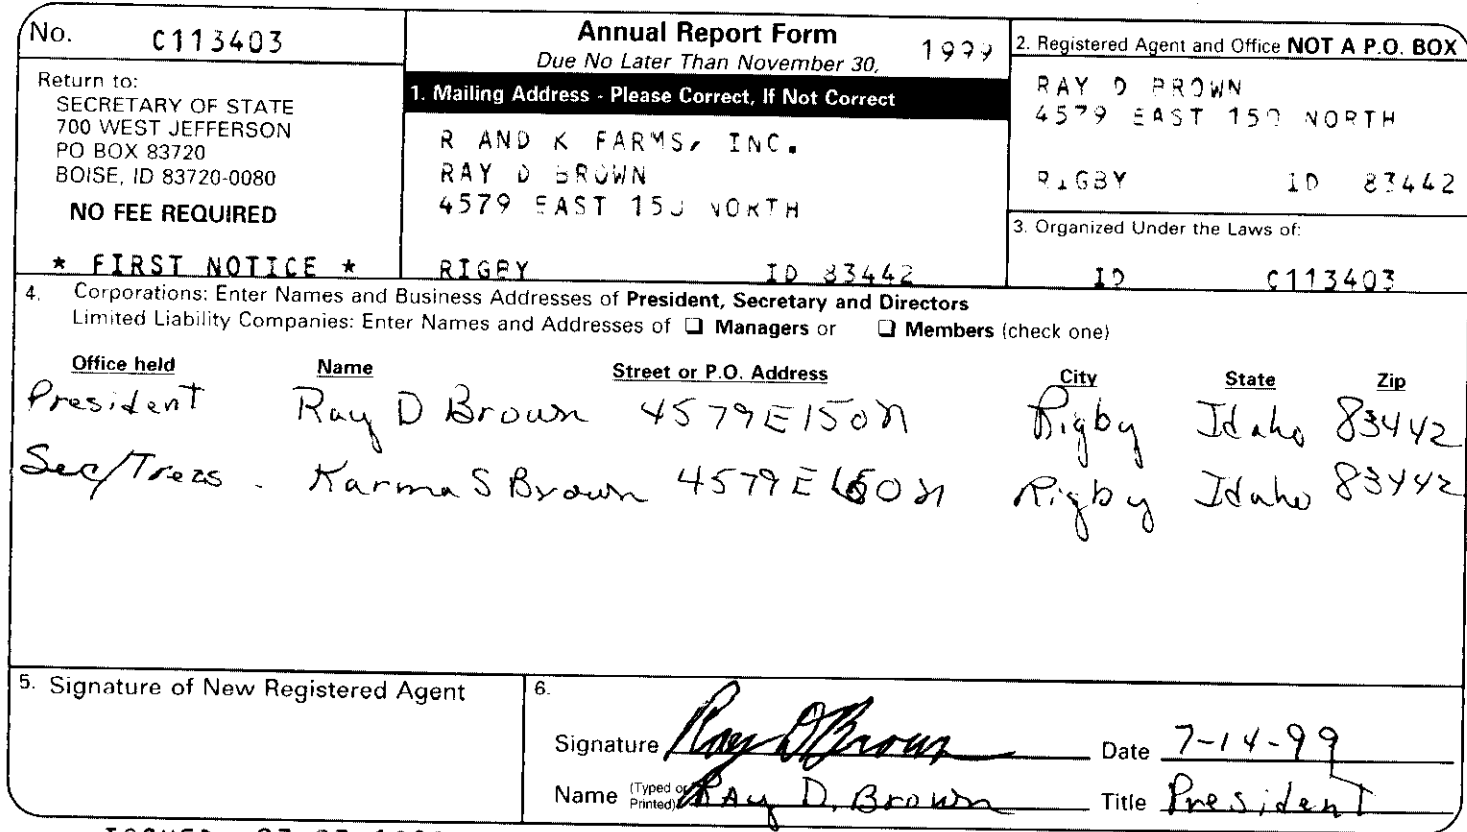 No. C113403
Return to:
SECRETARY OF STATE
700 WEST JEFFERSON
PO BOX 83720
BOISE, ID 83720-0080
NO FEE REQUIRED
* FIRST NOTICE *
Annual Report Form
Due No Later Than November 30, 1999
1. Mailing Address - Please Correct, If Not Correct
R AND K FARMS, INC.
RAY D BROWN
4579 EAST 150 NORTH
RIGBY ID 83442
2. Registered Agent and Office NOT A P.O. BOX
RAY D BROWN
4579 EAST 150 NORTH
RIGBY ID 83442
3. Organized Under the Laws of:
ID C113403
4. Corporations: Enter Names and Business Addresses of President, Secretary and Directors
Limited Liability Companies: Enter Names and Addresses of ❑ Managers or ❑ Members (check one)
Office held Name Street or P.O. Address City State Zip
President Ray D Brown 4579 E 150 N Rigby Idaho 83442
Sec/Treas. Karma S Brown 4579 E 150 N Rigby Idaho 83442
5. Signature of New Registered Agent
6.
Signature Ray D Brown Date 7-14-99
Name (Typed or Printed) Ray D. Brown Title President